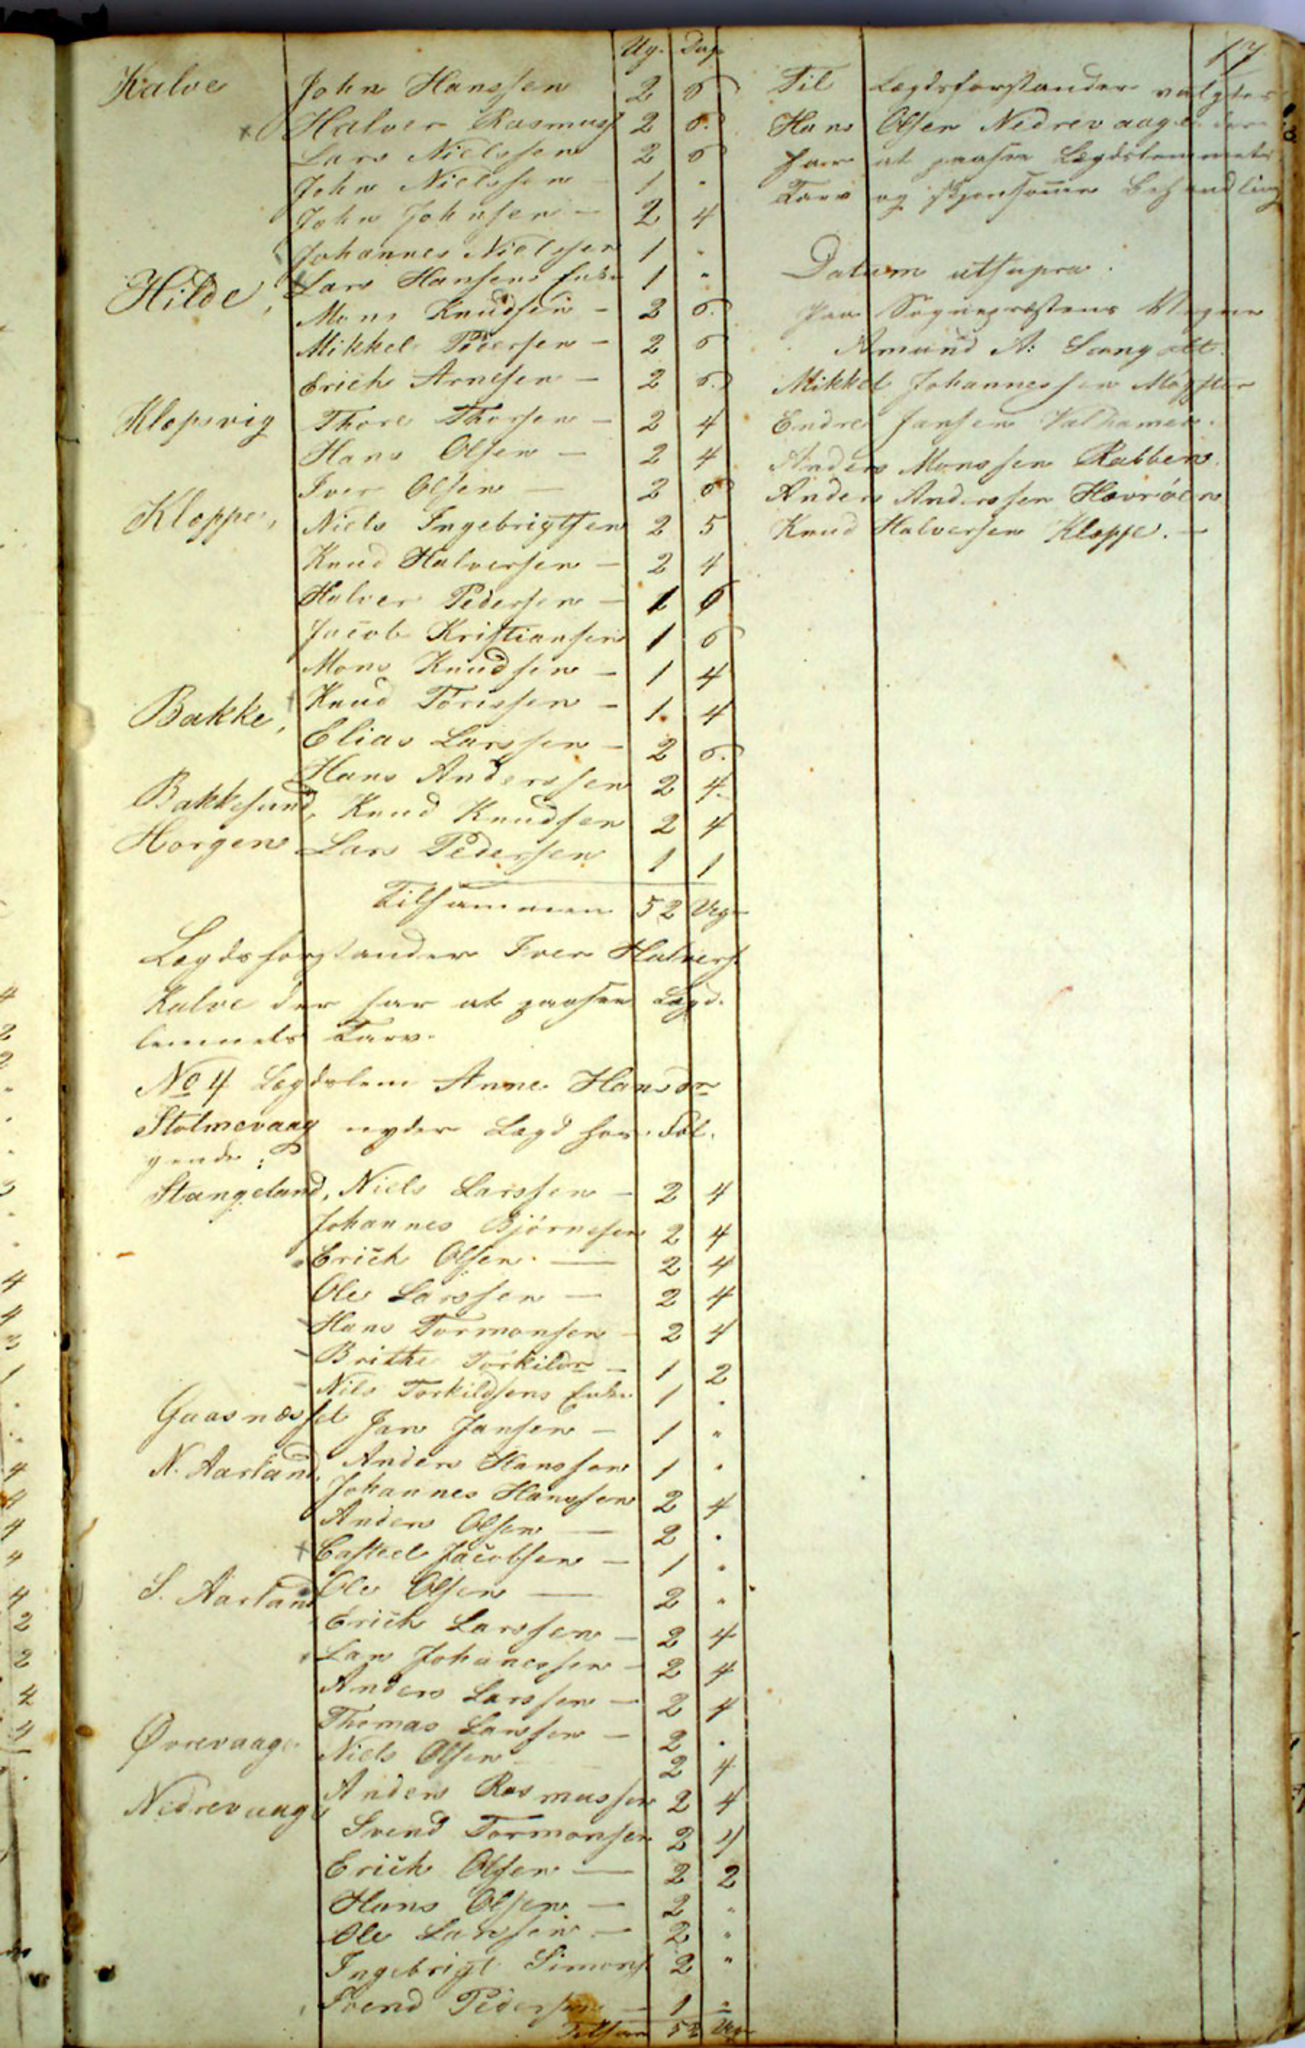 17
Ug. Dag
Kalve John Hanssen 2 6
Halver Rasmuss 2 6
Lars Nielssen 2 6
John Nielssen - 1 "
John Johnsen - 2 4
Johannes Nielssen 1 "
Hilde, Lars Hansens Enke 1 "
Mons Knudsen - 2 6
Mikkel Pedersen - 2 6
Erich Arnesen - 2 6
Klepsvig Thore Thorsen - 2 4
Hans Olsen - 2 4
Iver Olsen - 2 6
Kloppe, Niels Ingebrigtsen 2 5
Knud Halversen - 2 4
Halver Pedersen - 1 6
Jacob Kristiansen 1 6
Mons Knudsen - 1 4
Bakke, Knud Torissen - 1 4
Elias Larssen - 2 6
Hans Anderssen 2 4
Bakkesund, Knud Knudsen 2 4
Horgen Lars Pedersen 1 1
Tilsammen 52 Ug
Lægdsforstander Iver Halvers
Kalve der har at paasee Lægd-
lemmets Tarv.
No 4 Lægdslem Anne Hansdr
Stolmevaag nyder Lægd hos føl-
gende:
Stangeland, Niels Larssen - 2 4
Johannes Bjørnesen 2 4
Erich Olsen - 2 4
Ole Larssen - 2 4
Hans Tormonsen - 2 4
Brithe Torkildr - 1 2
Nils Torkildsens Enke 1 "
Gaasnæsset Jan Jansen - 1 "
N. Aarland, Anders Hanssen 1 "
Johannes Hanssen 2 4
Anders Olsen - 2 "
Jacobsen - 1 "
S. Aarland Ole Olsen - 2 "
Erich Larssen - 2 4
Lars Johanessen - 2 4
Anders Larssen - 2 4
Thomas Larssen - 2 "
Øvrevaage Niels Olsen 2 4
Nedrevaage Anders Rasmussen 2 4
Svend Tormonsen 2 4
Erich Olsen - 2 2
Hans Olsen - 2 "
Ole Larssen - 2 "
Ingebrigt Simons 2 "
Svend Pedersen - 1 "
Tilsam 52 Ug
Til Lægdsforstander valgtes
Hans Olsen Nedrevaage der
har at paasee Lægdslemmets
Tarv og skjønsomme Behandling
Datum utsupra.
Paa Sognepræstens Vegne
Amund A:
Mikkel Johannessen Møgster
Endre Jansen Valhamer.
Anders Monssen Rabben.
Anders Anderssen Hevrøen
Knud Halversen Kloppe. -